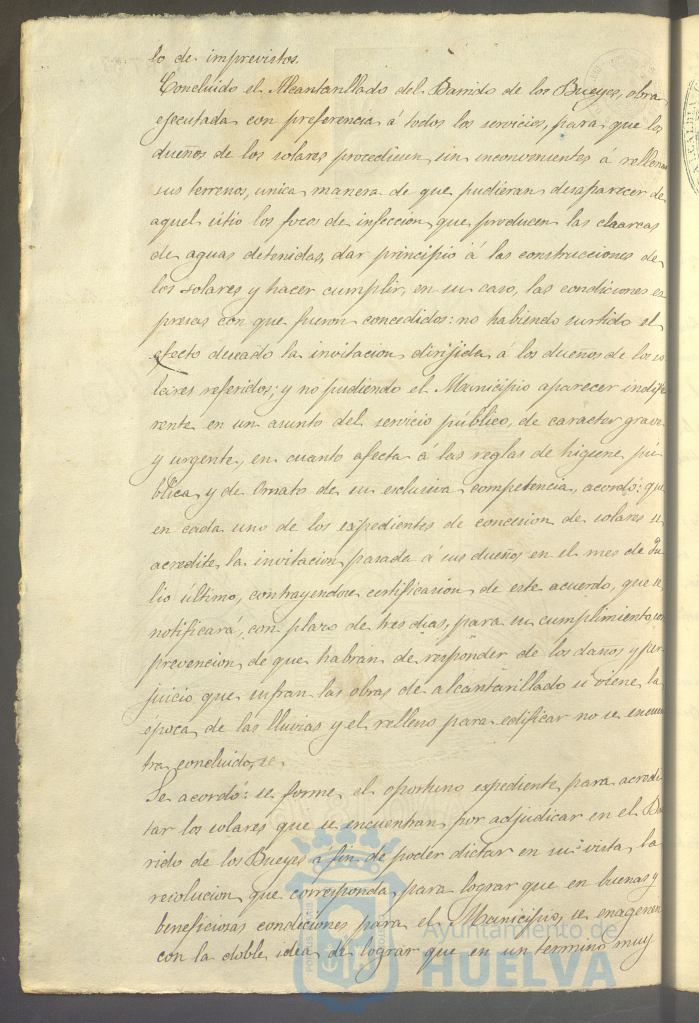 lo de imprevistos.
Concluido el Alcantarillado del Barrido de los Bueyes, obra
ejecutada con preferencia á todos los servicios, para que los
dueños de los solares procediesen sin inconvenientes á rellenar
sus terrenos, unica manera de que pudieran desaparecer de
aquel sitio los focos de infeccion, que producen las charcas
de aguas detenidas, dar principio á las construcciones de
los solares y hacer cumplir, en su caso, las condiciones ex
presas con que fueron concedidos: no habiendo surtido el
efecto deseado la invitacion dirijida á los dueños de los so
lares referidos; y no pudiendo el Municipio aparecer indife
rente en un asunto del servicio público, de caracter grave
y urgente, en cuanto afecta á las reglas de higiene pú
blica y de Ornato de su esclusiva competencia, acordó: que
en cada uno de los expedientes de concesion de solares se
acredite la invitacion pasada á sus dueños en el mes de Ju
lio último, contrayendose certificasion de este acuerdo, que se
notificará, con plazo de tres dias, para su cumplimiento, con
prevencion de que habrán de responder de los daños y per
juicio que sufran las obras de alcantarillado si viene la
época de las lluvias y el relleno para edificar no se encuen
tra concluido.
Se acordó: se forme el oportuno expediente para acredi
tar los solares que se encuentran por adjudicar en el Ba
rrido de los Bueyes á fin de poder dictar en su vista, la
resolucion que corresponda, para lograr que en buenas y
beneficiosas condiciones para el Municipio, se enagenen
con la doble idea de lograr que en un termino muy
Ayuntamiento de
HUELVA